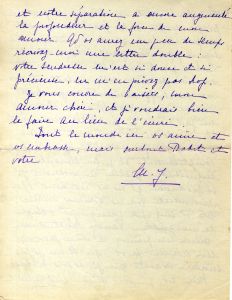 et notre séparation a encore augmenté
la profondeur et la force de mon
amour. Si vous avez un peu de temps
envoyez-moi une lettre double.
votre tendresse m'est si douce et si
précieuse, ne m'en privez pas trop.
Je vous couvre de baisers, mon
amour chéri, et je voudrais bien
le faire au lieu de l'écrire.
Tout le monde vous aime et
vous embrasse, mais surtout et
votre